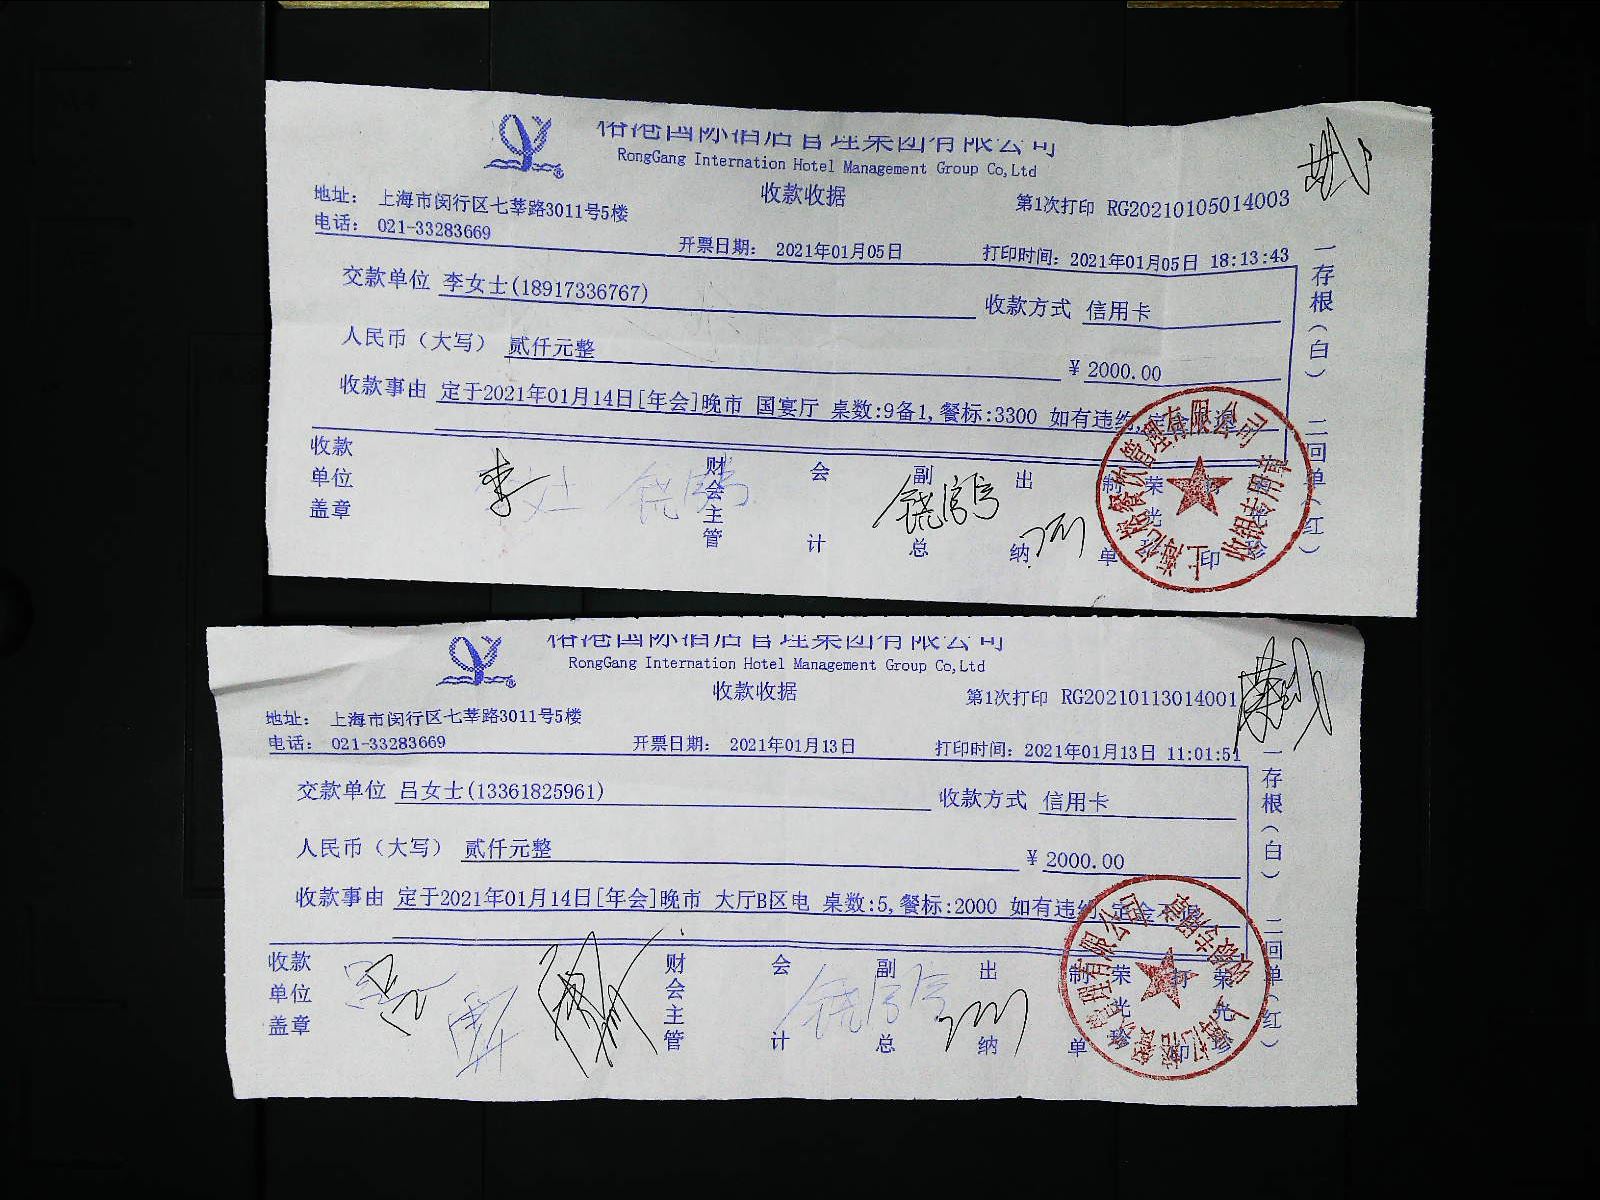 榕港国际酒店管理集团有限公司
RongGang Internation Hotel Management Group Co,Ltd
收款收据
第1次打印 RG20210105014003
地址： 上海市闵行区七莘路3011号5楼
电话： 021-33283669
开票日期： 2021年01月05日
打印时间：2021年01月05日 18:13:43
交款单位 李女士(18917336767)
收款方式 信用卡
人民币（大写） 贰仟元整
￥2000.00
收款事由 定于2021年01月14日[年会]晚市 国宴厅 桌数:9备1,餐标:3300 如有违约,定金不退
收款单位盖章
李
财会主管
会计
副总
出纳
制单
荣光珍
打印
荣光珍
一存根（白） 二回单（红）
榕港国际酒店管理集团有限公司
RongGang Internation Hotel Management Group Co,Ltd
收款收据
第1次打印 RG20210113014001
地址： 上海市闵行区七莘路3011号5楼
电话： 021-33283669
开票日期： 2021年01月13日
打印时间：2021年01月13日 11:01:51
交款单位 吕女士(13361825961)
收款方式 信用卡
人民币（大写） 贰仟元整
￥2000.00
收款事由 定于2021年01月14日[年会]晚市 大厅B区电 桌数:5,餐标:2000 如有违约,定金不退
收款单位盖章
财会主管
会计
副总
出纳
制单
荣光珍
打印
荣光珍
一存根（白） 二回单（红）